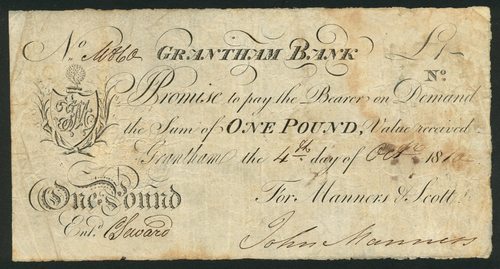 No. M860 GRANTHAM BANK £1-
No.
Promise to pay the Bearer on Demand
the Sum of ONE POUND, Value received
Grantham the 4th day of Octr. 1810
One Pound For Manners & Scott
Entd. C Seward
John Manners